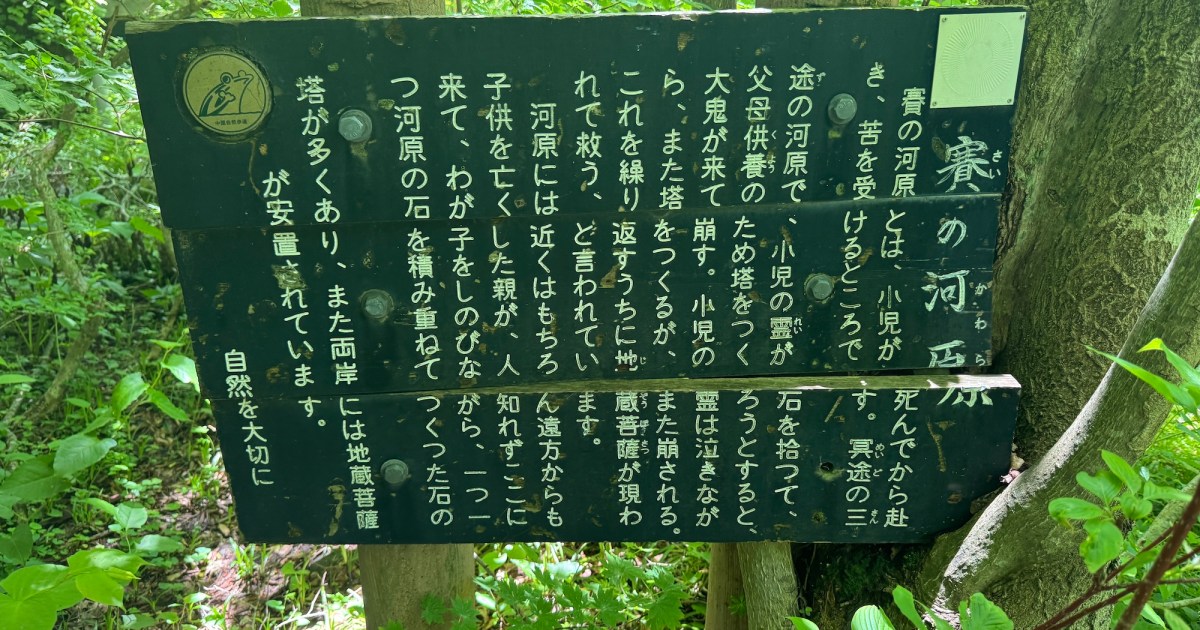 賽の河原
さい
かわら
賽の河原とは、小児が死んでから赴
き、苦を受けるところです。冥途の三
めいど
さん
途の河原で、小児の霊が石を拾つて、
ず
れい
父母供養のため塔をつくろうとすると、
くよう
大鬼が来て崩す。小児の霊は泣きなが
ら、また塔をつくるが、また崩される。
これを繰り返すうちに地蔵菩薩が現わ
じぞうぼさつ
れて救う、ど言われています。
河原には近くはもちろん遠方からも
子供を亡くした親が、人知れずここに
来て、わが子をしのびながら、一つ一
つ河原の石を積み重ねてつくつた石の
塔が多くあり、また両岸には地蔵菩薩
が安置されています。
自然を大切に